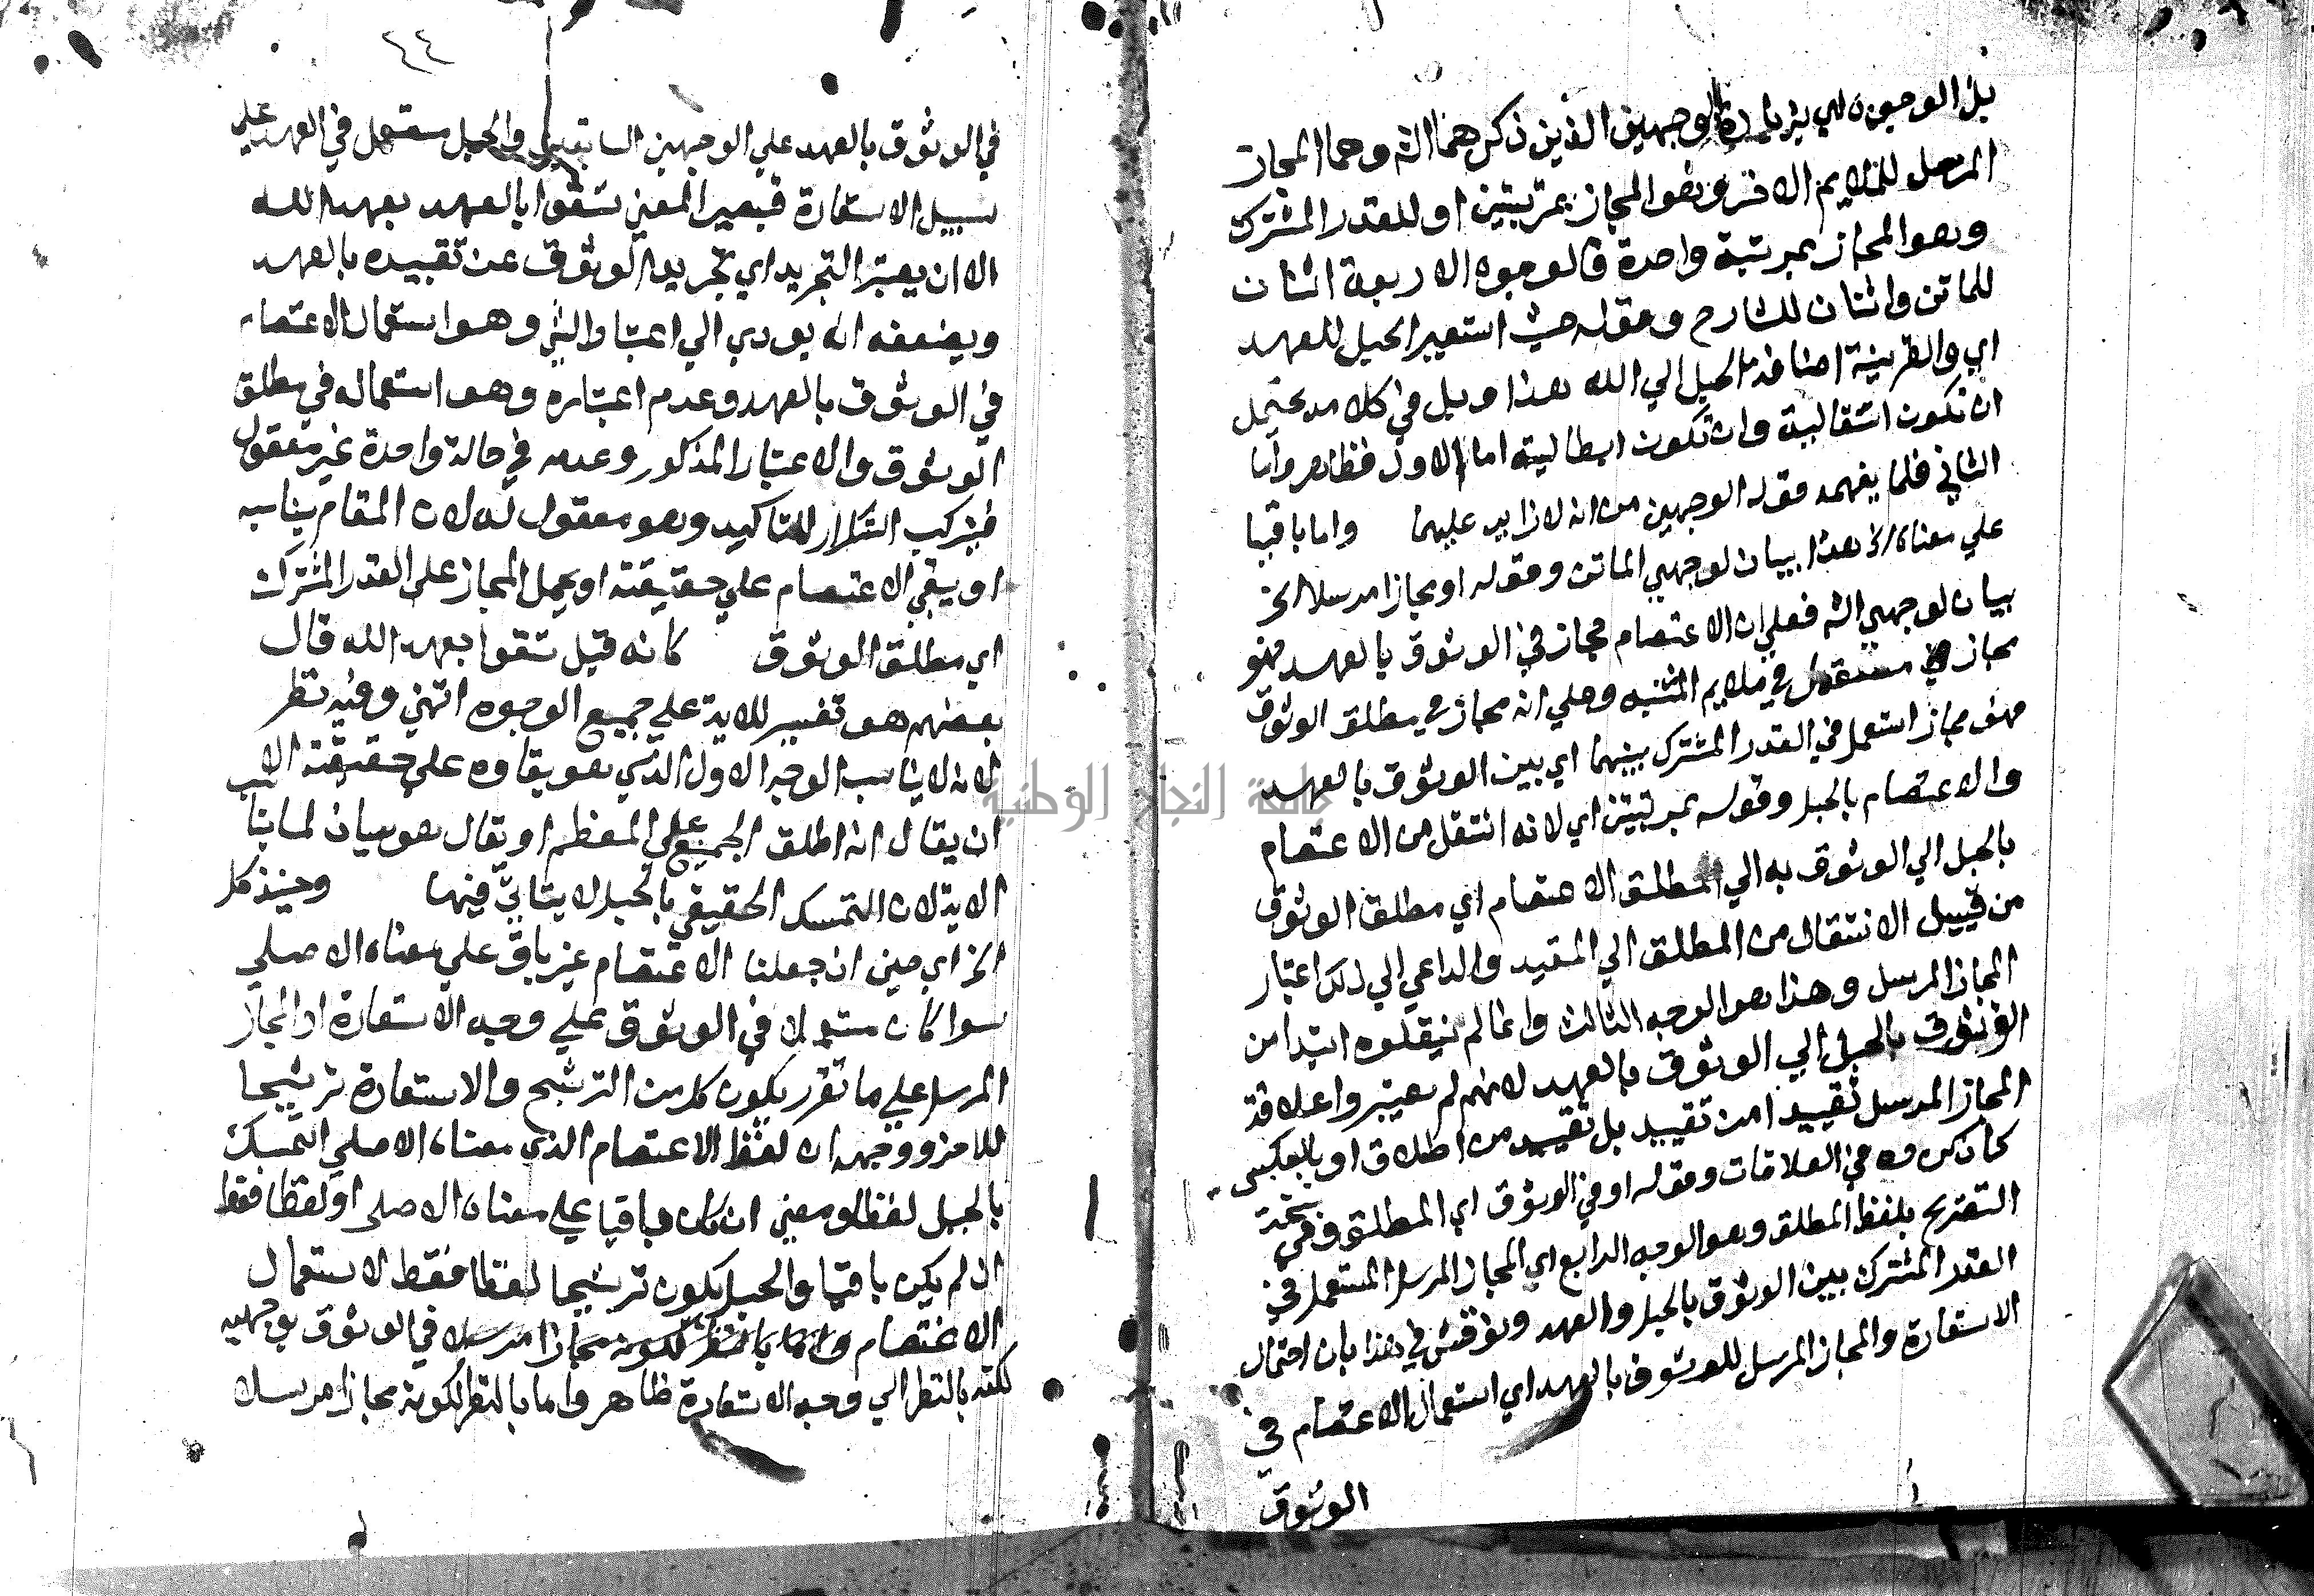 بل الوجوه لهي بزيادة الوجهين الذين ذكرهما الشه وهما المجاز
المرسل للملايم الاخر وهو المجاز بمرتبتين او للقدر المشترك
وهو المجاز بمرتبة واحدة فالوجوه الاربعة اثنان
للماتن واثنان للشارح وقوله حيث استعير الحبل للعهد
اي والقرينة اضافة الحبل الي الله هذا وبل في كلامه يحتمل
ان تكون انتقالية وان تكون ابطالية اما الاول فظاهر واما
الثاني فلما يفهمه قوله الوجهين من انه لا زايد عليهما واما باقيا
علي معناه الخ هذا بيان لوجهي الماتن وقوله او مجازا مرسلا الخ
بيان لوجهي الشه فعلي ان الاعتصام مجاز في الوثوق بالعهد فهو
مجاز مستعمل في ملايم المشبه وعلي انه مجاز في مطلق الوثوق
فهو مجاز استعمل في القدر المشترك بينهما اي بين الوثوق بالعهد
والاعتصام بالحبل وقوله بمرتبتين اي لانه انتقل من الاعتصام
بالحبل الي الوثوق به الي المطلق الاعتصام اي مطلق الوثوق
من قبيل الانتقال من المطلق الي المقيد والداعي الي ذلك اعتبار
المجاز المرسل وهذا هو الوجه الثالث وانما لم ينقلوه ابتدا من
الوثوق بالحبل الي الوثوق بالعهد لانهم لم يعتبروا علاقة
المجاز المرسل تقييدا من تقييد بل تقييد من اطلاق او بالعكس
كما ذكروه في العلاقات وقوله او في الوثوق اي المطلق وفي نسخة
التصريح بلفظ المطلق وهو الوجه الرابع اي المجاز المرسل المستعمل في
القدر المشترك بين الوثوق بالحبل والعهد ونوقش في هذا بان احتمال
الاستعارة والمجاز المرسل للوثوق بالعهد اي استعمال الاعتصام في
الوثوق
٤٤
في الوثوق بالعهد علي الوجهين السابقين والحبل مستعمل في العهد علي
سبيل الاستعارة فيصير المعني ثقوا بالعهد بعهد الله
الا ان يعتبر التجريد اي تجريد الوثوق عن تقييده بالعهد
ويضعفه انه يودي الي اعتبار الشي وهو استعمال الاعتصام
في الوثوق بالعهد وعدم اعتباره وهو استعماله في مطلق
الوثوق والاعتبار المذكور وعدمه في حالة واحدة غير معقول
فيرتكب التكرار للتاكيد وهو معقول له لان المقام يناسبه
او يبقي الاعتصام علي حقيقته او يحمل المجاز علي القدر المشترك
اي مطلق الوثوق كانه قيل ثقوا بعهد الله قال
بعضهم هو تفسير للاية علي جميع الوجوه انتهي وفيه نظر
لانه لا يناسب الوجه الاول الذي هو بقاوه علي حقيقته الا
ان يقال انه اطلق الجميع علي المعظم او يقال هو بيان لما يناسب
الاية لان التمسك الحقيقي بالحبل لا يتاتي فيها وحينئذ كل
الخ اي حين ان جعلنا الاعتصام غير باق علي معناه الاصلي
سوا كان مستعملا في الوثوق علي وجه الاستعارة او المجاز
المرسل علي ما تقرر يكون كل من الترشيح والاستعارة ترشيحا
للاخر ووجهه ان لفظ الاعتصام الذي معناه الاصلي التمسك
بالحبل لفظا ومعني ان كان باقيا علي معناه الاصلي او لفظا فقط
ان لم يكن باقيا والحبل يكون ترشيحا لفظا فقط لاستعمال
الاعتصام واما بالنظر لكونه مجازا مرسلا في الوثوق بوجهيه
لكنه بالنظر الي وجه الاستعارة ظاهر واما بالنظر لكونه مجازا مرسلا
جامعة النجاح الوطنية